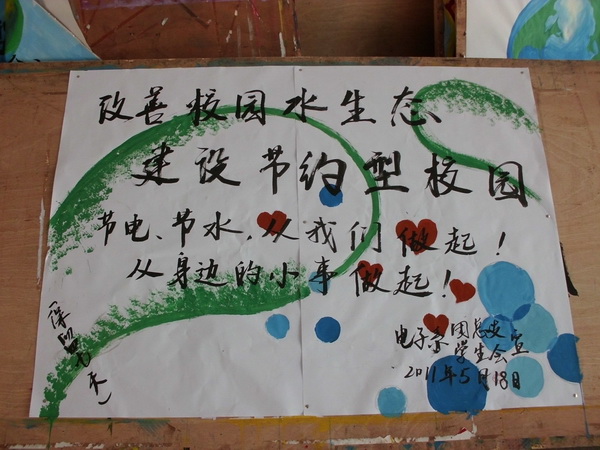 改善校园水生态
建设节约型校园
节电、节水，从我们做起！
从身边的小事做起！
电子系团总支
学生会宣
2011年5月18日